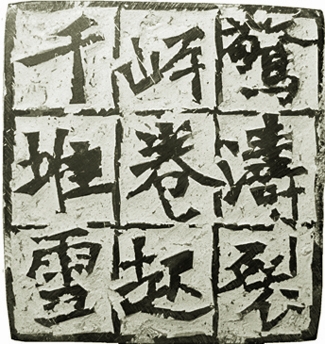 驚濤裂
岸卷起
千堆雪